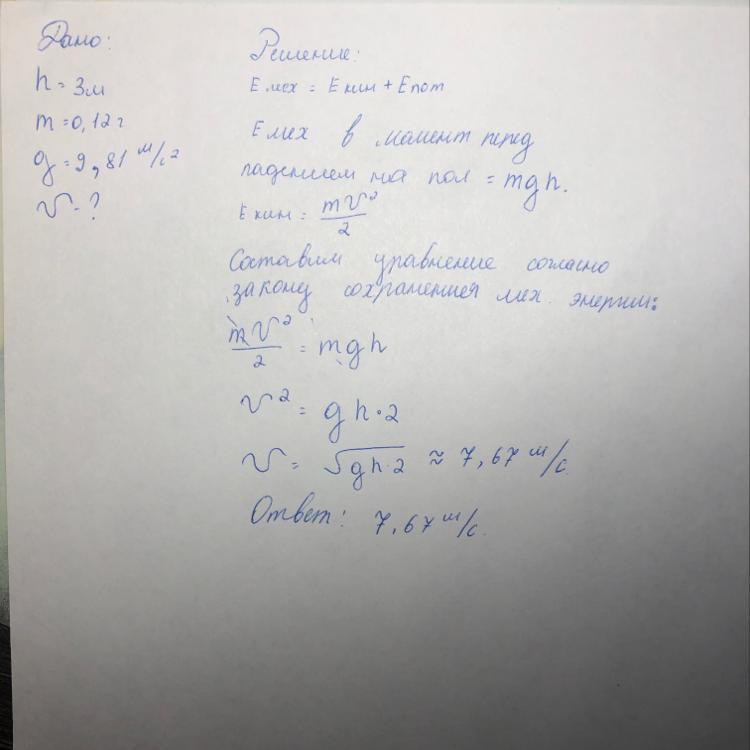 Дано:
h = 3м
m = 0,12г
g = 9,81 м/с²
v - ?
Решение:
E мех = E кин + E пот
E мех в момент перед
падением на пол = mgh.
E кин = mv²/2
Составим уравнение согласно
закону сохранения мех. энергии:
mv²/2 = mgh
v² = gh·2
v = √gh·2 ≈ 7,67 м/с.
Ответ: 7,67 м/с.